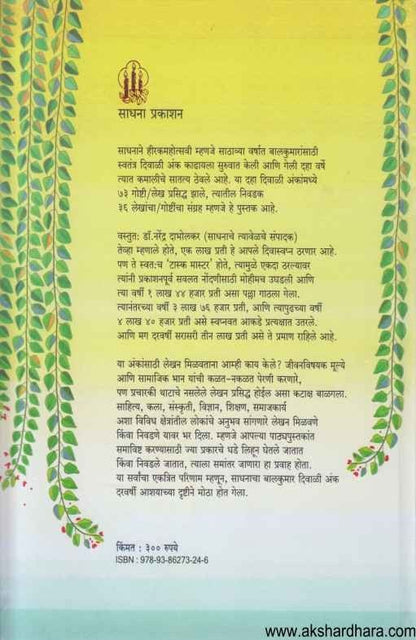 साधना प्रकाशन
साधनाने हीरकमहोत्सवी म्हणजे साठाव्या वर्षात बालकुमारांसाठी
स्वतंत्र दिवाळी अंक काढायला सुरुवात केली आणि गेली दहा वर्षे
त्यात कमालीचे सातत्य ठेवले आहे. या दहा दिवाळी अंकांमध्ये
७३ गोष्टी/लेख प्रसिद्ध झाले, त्यातील निवडक
३६ लेखांचा/गोष्टींचा संग्रह म्हणजे हे पुस्तक आहे.
वस्तुत: डॉ.नरेंद्र दाभोलकर (साधनाचे त्यावेळचे संपादक)
तेव्हा म्हणाले होते, एक लाख प्रती हे आपले दिवास्वप्न ठरणार आहे.
पण ते स्वत:च 'टास्क मास्टर' होते, त्यामुळे एकदा ठरल्यावर
त्यांनी प्रकाशनपूर्व सवलत नोंदणीसाठी मोहीमच उघडली आणि
त्या वर्षी १ लाख ४४ हजार प्रती असा पल्ला गाठला गेला.
त्यानंतरच्या वर्षी ३ लाख ७६ हजार प्रती, आणि त्यापुढच्या वर्षी
४ लाख ४० हजार प्रती असे स्वप्नवत आकडे प्रत्यक्षात उतरले.
आणि मग दरवर्षी सरासरी तीन लाख प्रती असे ते प्रमाण राहिले आहे.
या अंकांसाठी लेखन मिळवताना आम्ही काय केले? जीवनविषयक मूल्ये
आणि सामाजिक भान यांची कळत-नकळत पेरणी करणारे,
पण प्रचारकी थाटाचे नसलेले लेखन प्रसिद्ध होईल असा कटाक्ष बाळगला.
साहित्य, कला, संस्कृती, विज्ञान, शिक्षण, समाजकार्य
अशा विविध क्षेत्रांतील लोकांचे अनुभव सांगणारे लेखन मिळवणे
किंवा निवडणे यावर भर दिला. म्हणजे आपल्या पाठ्यपुस्तकांत
समाविष्ट करण्यासाठी ज्या प्रकारचे धडे लिहून घेतले जातात
किंवा निवडले जातात, त्याला समांतर जाणारा हा प्रवाह होता.
या सर्वांचा एकत्रित परिणाम म्हणून, साधनाचा बालकुमार दिवाळी अंक
दरवर्षी आशयाच्या दृष्टीने मोठा होत गेला.
किंमत : ३०० रुपये
ISBN : 978-93-86273-24-6
www.akshardhara.com